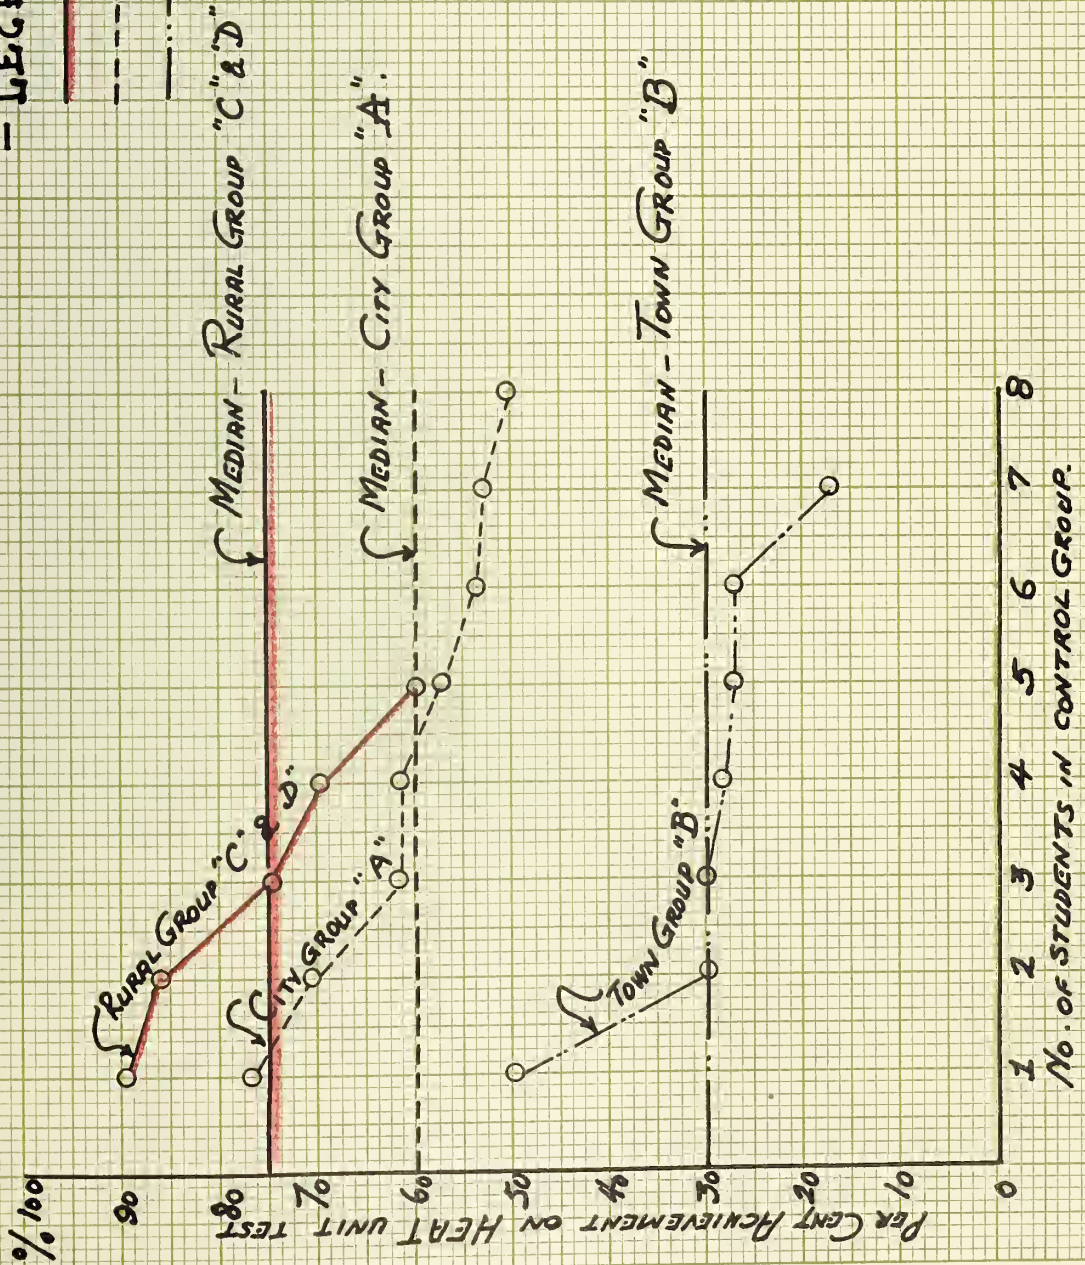 = LEG
MEDIAN - RURAL GROUP "C" & "D"
MEDIAN - CITY GROUP "A".
MEDIAN - TOWN GROUP "B"
RURAL GROUP "C" & "D"
CITY GROUP "A"
TOWN GROUP "B"
% 100
90
80
70
60
50
40
30
20
10
0
PER CENT ACHIEVEMENT ON HEAT UNIT TEST
1 2 3 4 5 6 7 8
NO. OF STUDENTS IN CONTROL GROUP.